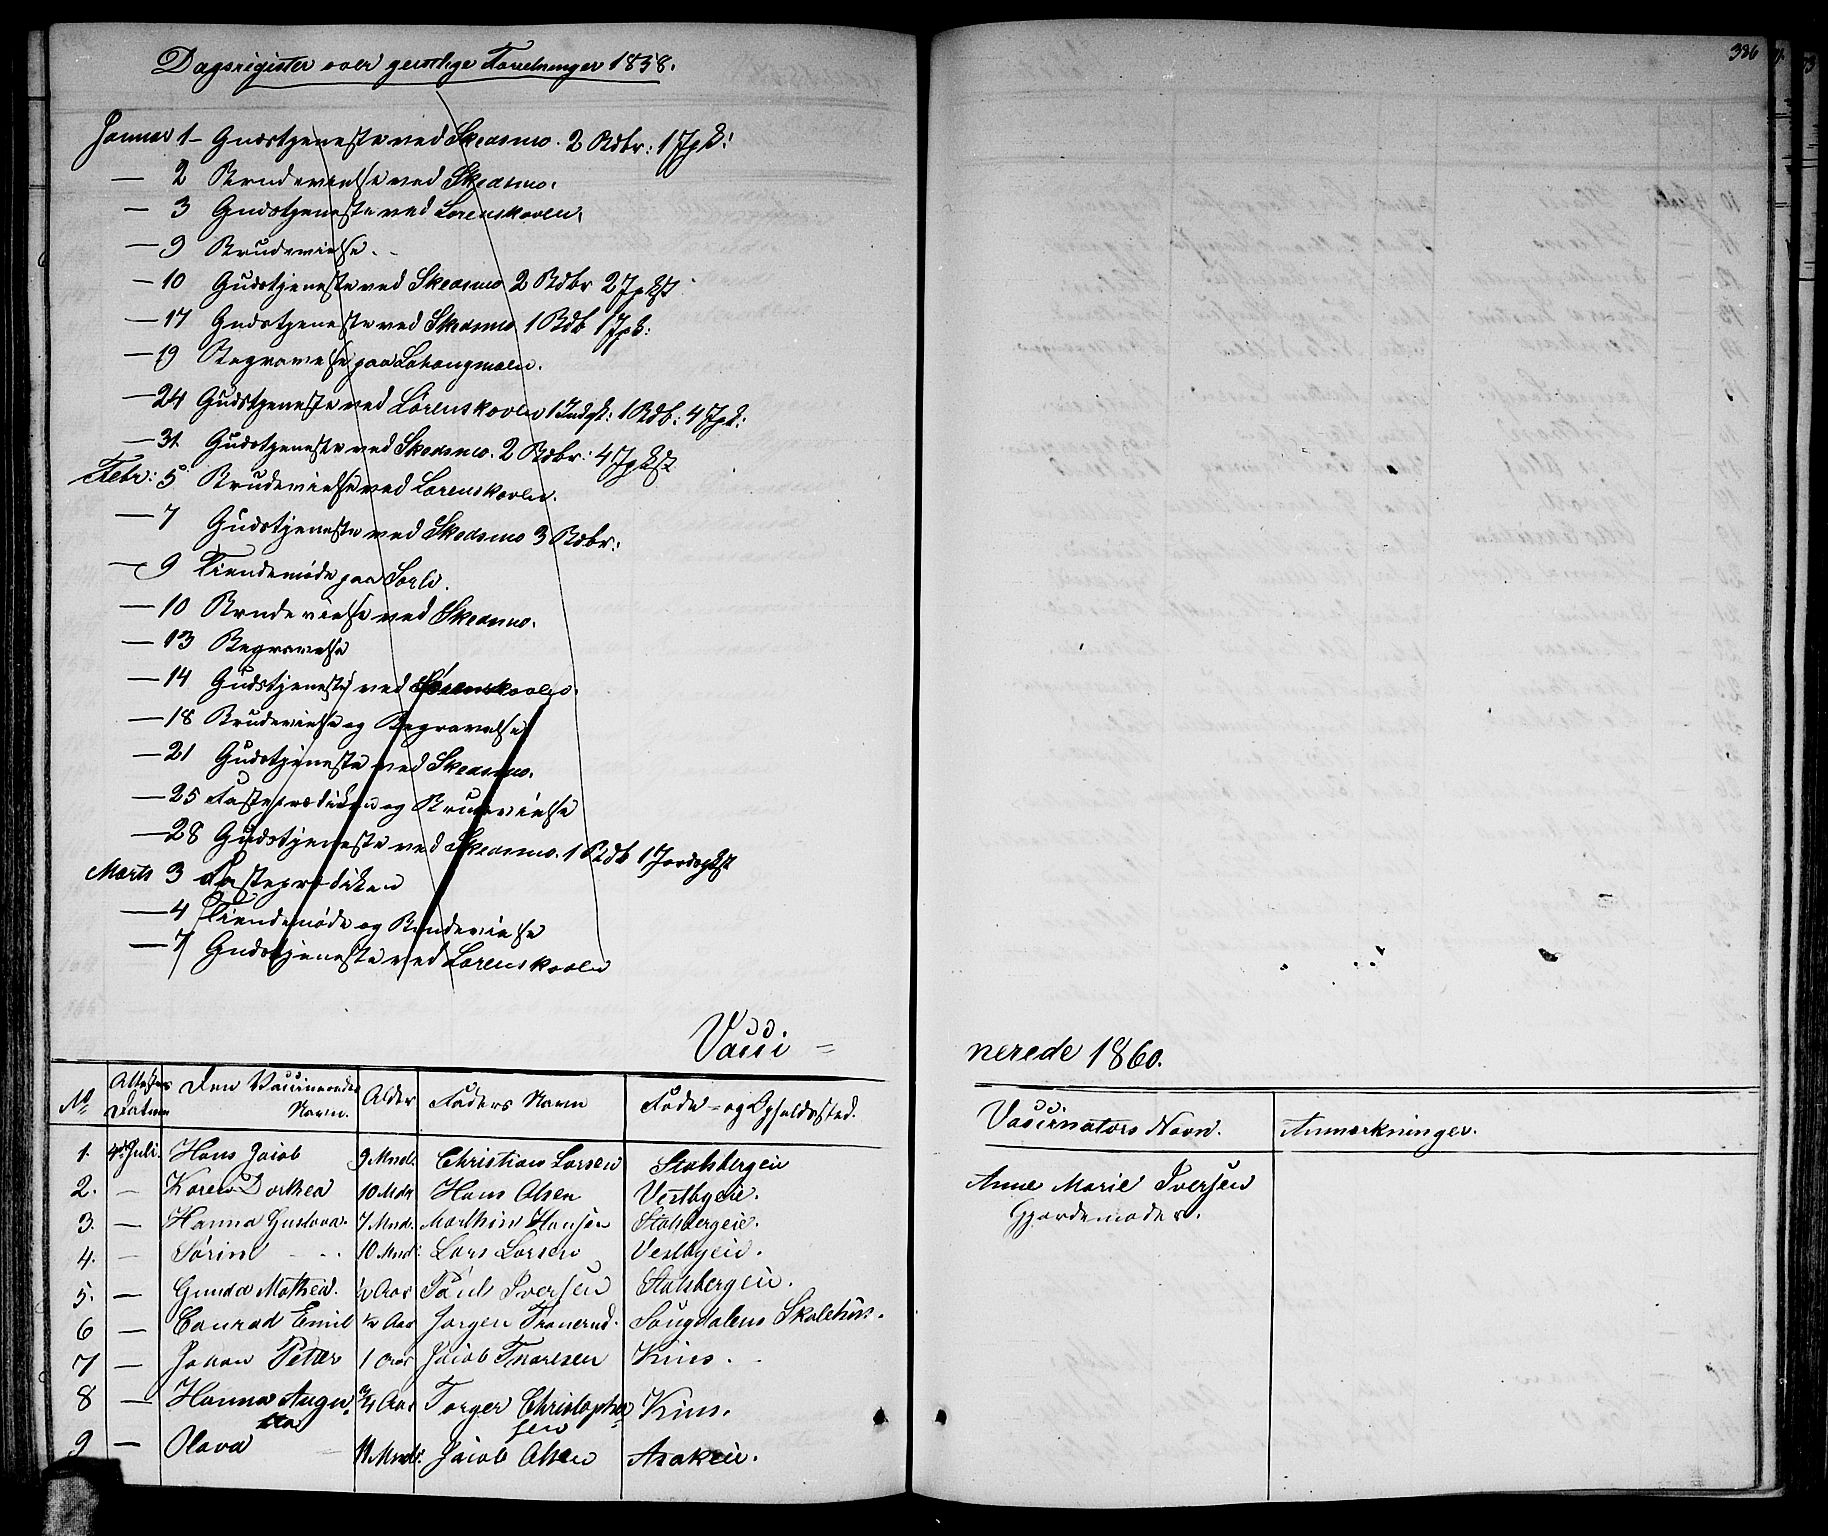 Dagsregister over geistlige Forretninger 1858.
386
Januar 1 - Gudstjeneste ved Skedsmo. 2 Ædbr: 1 Jpk:
— 2 Brudevielse ved Skedsmo.
— 3 Gudstjeneste ved Lørenskoven.
— 9 Brudevielse.
— 10 Gudstjeneste ved Skedsmo 2 Bdbr 2 Jpkst
— 17 Gudstjeneste ved Skedsmo 1 Bdb 1 Jpk:
— 19 Begravelse paa
— 24 Gudstjeneste ved Lørenskoven 1 Indgk: 1 Bdb: 4 Jpk:
— 31. Gudstjeneste ved Skedsmo. 2 Bdbr: 4 Jpkst
Febr: 5 Brudevielse ved Lørenskoven.
— 7 Gudstjeneste ved Skedsmo 3 Bdbr:
— 9 Tiendemøde paa Sørli.
— 10 Brudevielse ved Skedsmo.
— 13 Begravelse
— 14 Gudstjeneste ved Lørenskoven.
— 18 Brudevielse og Begravelse
— 21 Gudstjeneste ved Skedsmo.
— 25 Fasteprædiken og Brudevielse
— 28 Gudstjeneste ved Skedsmo. 1 Bdb 1 Jordpkst
Marts 3 Fasteprædiken
— 4 Tiendemøde og Brudevielse
— 7 Gudstjeneste ved Lørenskoven
Vacci = nerede 1860.
No Attestens Datum Den Vaccineredes Navn. Alder Faders Navn Føde- og Opholdssted. Vaccinators Navn. Anmærkninger.
1. 4de Juli. Hans Jacob 9 Mnd. Christian Larsen Stalsbergeie Anne Marie Iversen
2. — Karen Dorthea 10 Mdr Hans Olsen Vestbyeie. Gjordemoder.
3. — Hanna Gustava. 7 Mnd. Marthin Hansen Stalsbergeie.
4. — Sørine 10 Mnd: Lars Larsen Vestbyeie.
5. — Gunda Mathea. ½ Aar Paul Iversen Stalsbergeie.
6 — Conrad Emil ½ Aar Jørgen Tranerud. Sougdalens Skolehus.
7 — Johan Peter 1 Aar Jacob Thoresen Krus.
8 — Hanna Augu- ¾ Aar Torger Christopher- Krus.
sta sen
9 — Olava 11 Mndr. Jacob Olsen Asakeie.